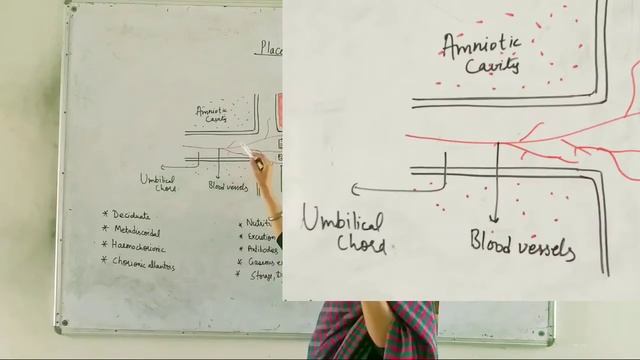 Place
Amniotic
Cavity
Umbilical
Chord
Blood vessels
* Deciduate
* Metadiscoidal
* Haemochorionic
* Chorionic allantois
* Nutriti
* Excretion
* Antibodies
* Gaseous e
* Storage, D
Amniotic
Cavity
Umbilical
Chord
Blood vessels